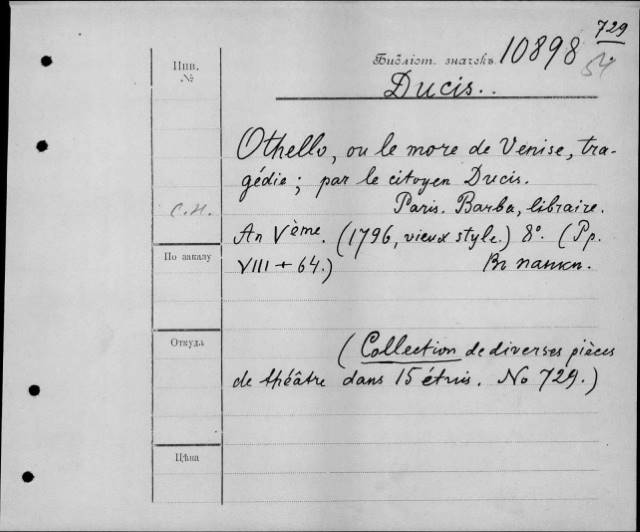 729
Инв. №
Библіот. значекъ 10898
54
Ducis..
Othello, ou le more de Venise, tra-
gédie; par le citoyen Ducis.
С.Н.
Paris. Barba, libraire.
An Vème. (1796, vieux style.) 8°. (Pp.
По заказу
VIII + 64.) Въ папкѣ.
Откуда
(Collection de diverses pièces
de théâtre dans 15 étuis. No 729.)
Цѣна